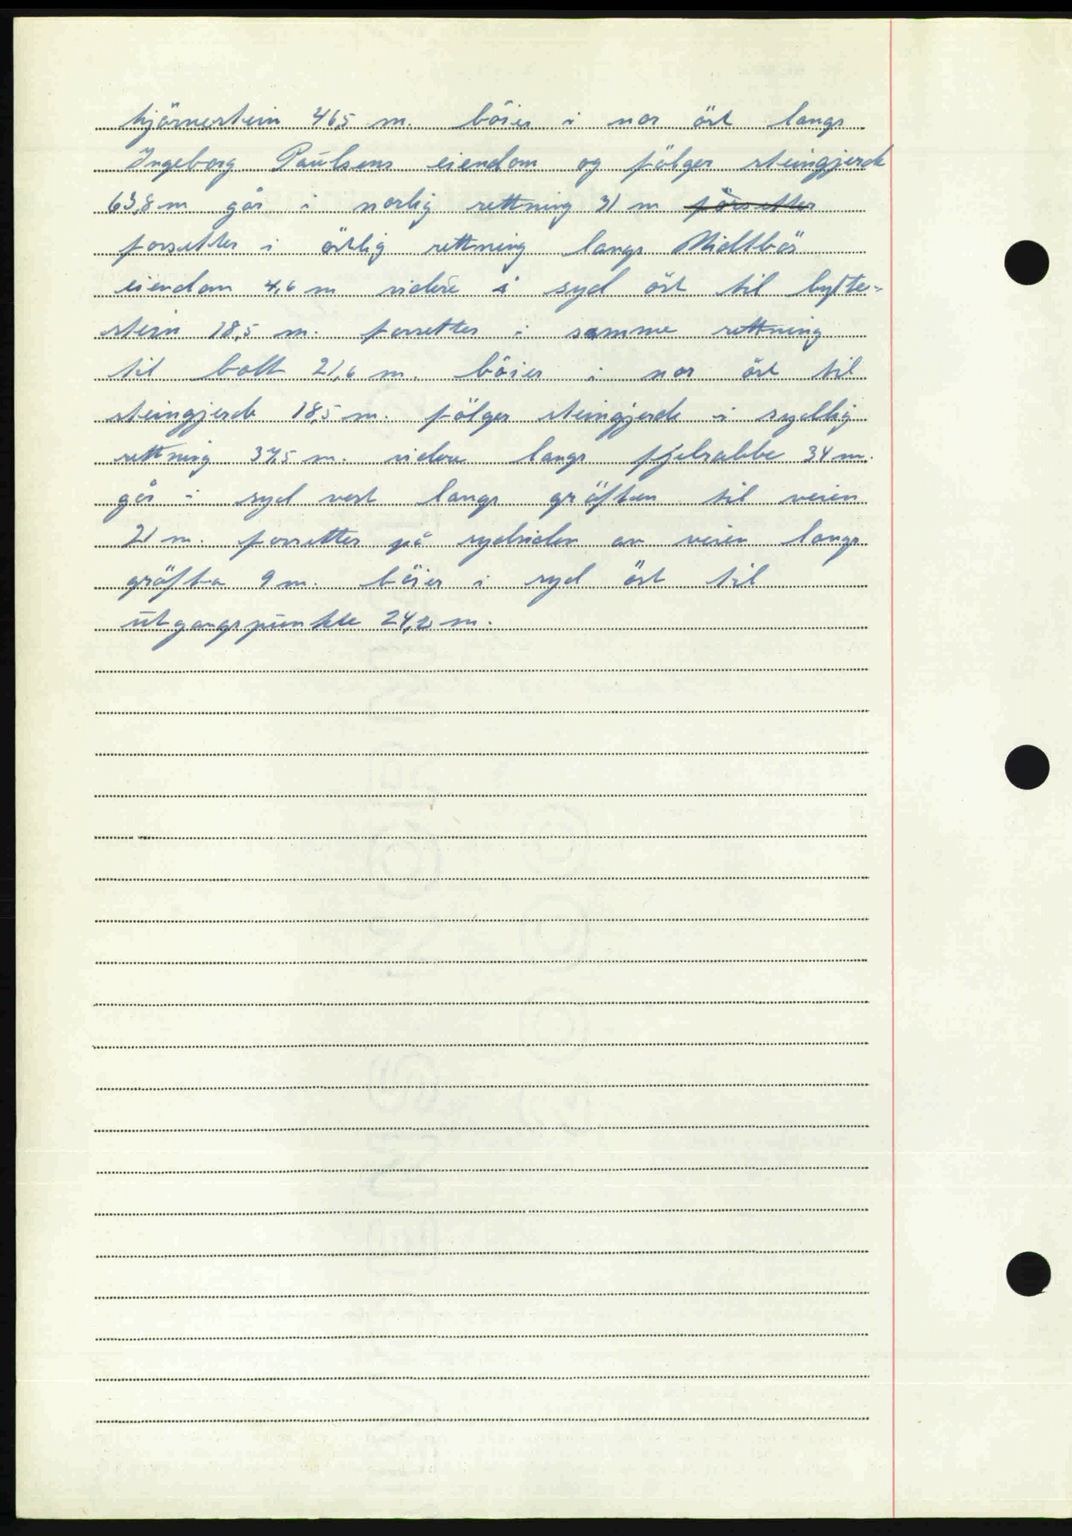 hjörnestein 46,5 m. böier i nor öst langs
Ingeborg Paulsens eiendom og fölger steingjerde
63,8 m går i norlig rettning 31 m försetter
forsetter i östlig rettning langs Midtbös
eiendom 4,6 m videre i syd öst til bytte-
stein 18,5 m. forsetter i samme rettning
til bolt 21,6 m. böier i nor öst til
steingjerde 18,5 m. fölger steingjerde i sydlig
rettning 37,5 m. videre langs fjelrabbe 34 m.
går i syd vest langs gröften til veien
21 m. forsetter på sydsiden av veien langs
gröfta 9 m. böier i syd öst til
utgangspunkte 24,0 m.